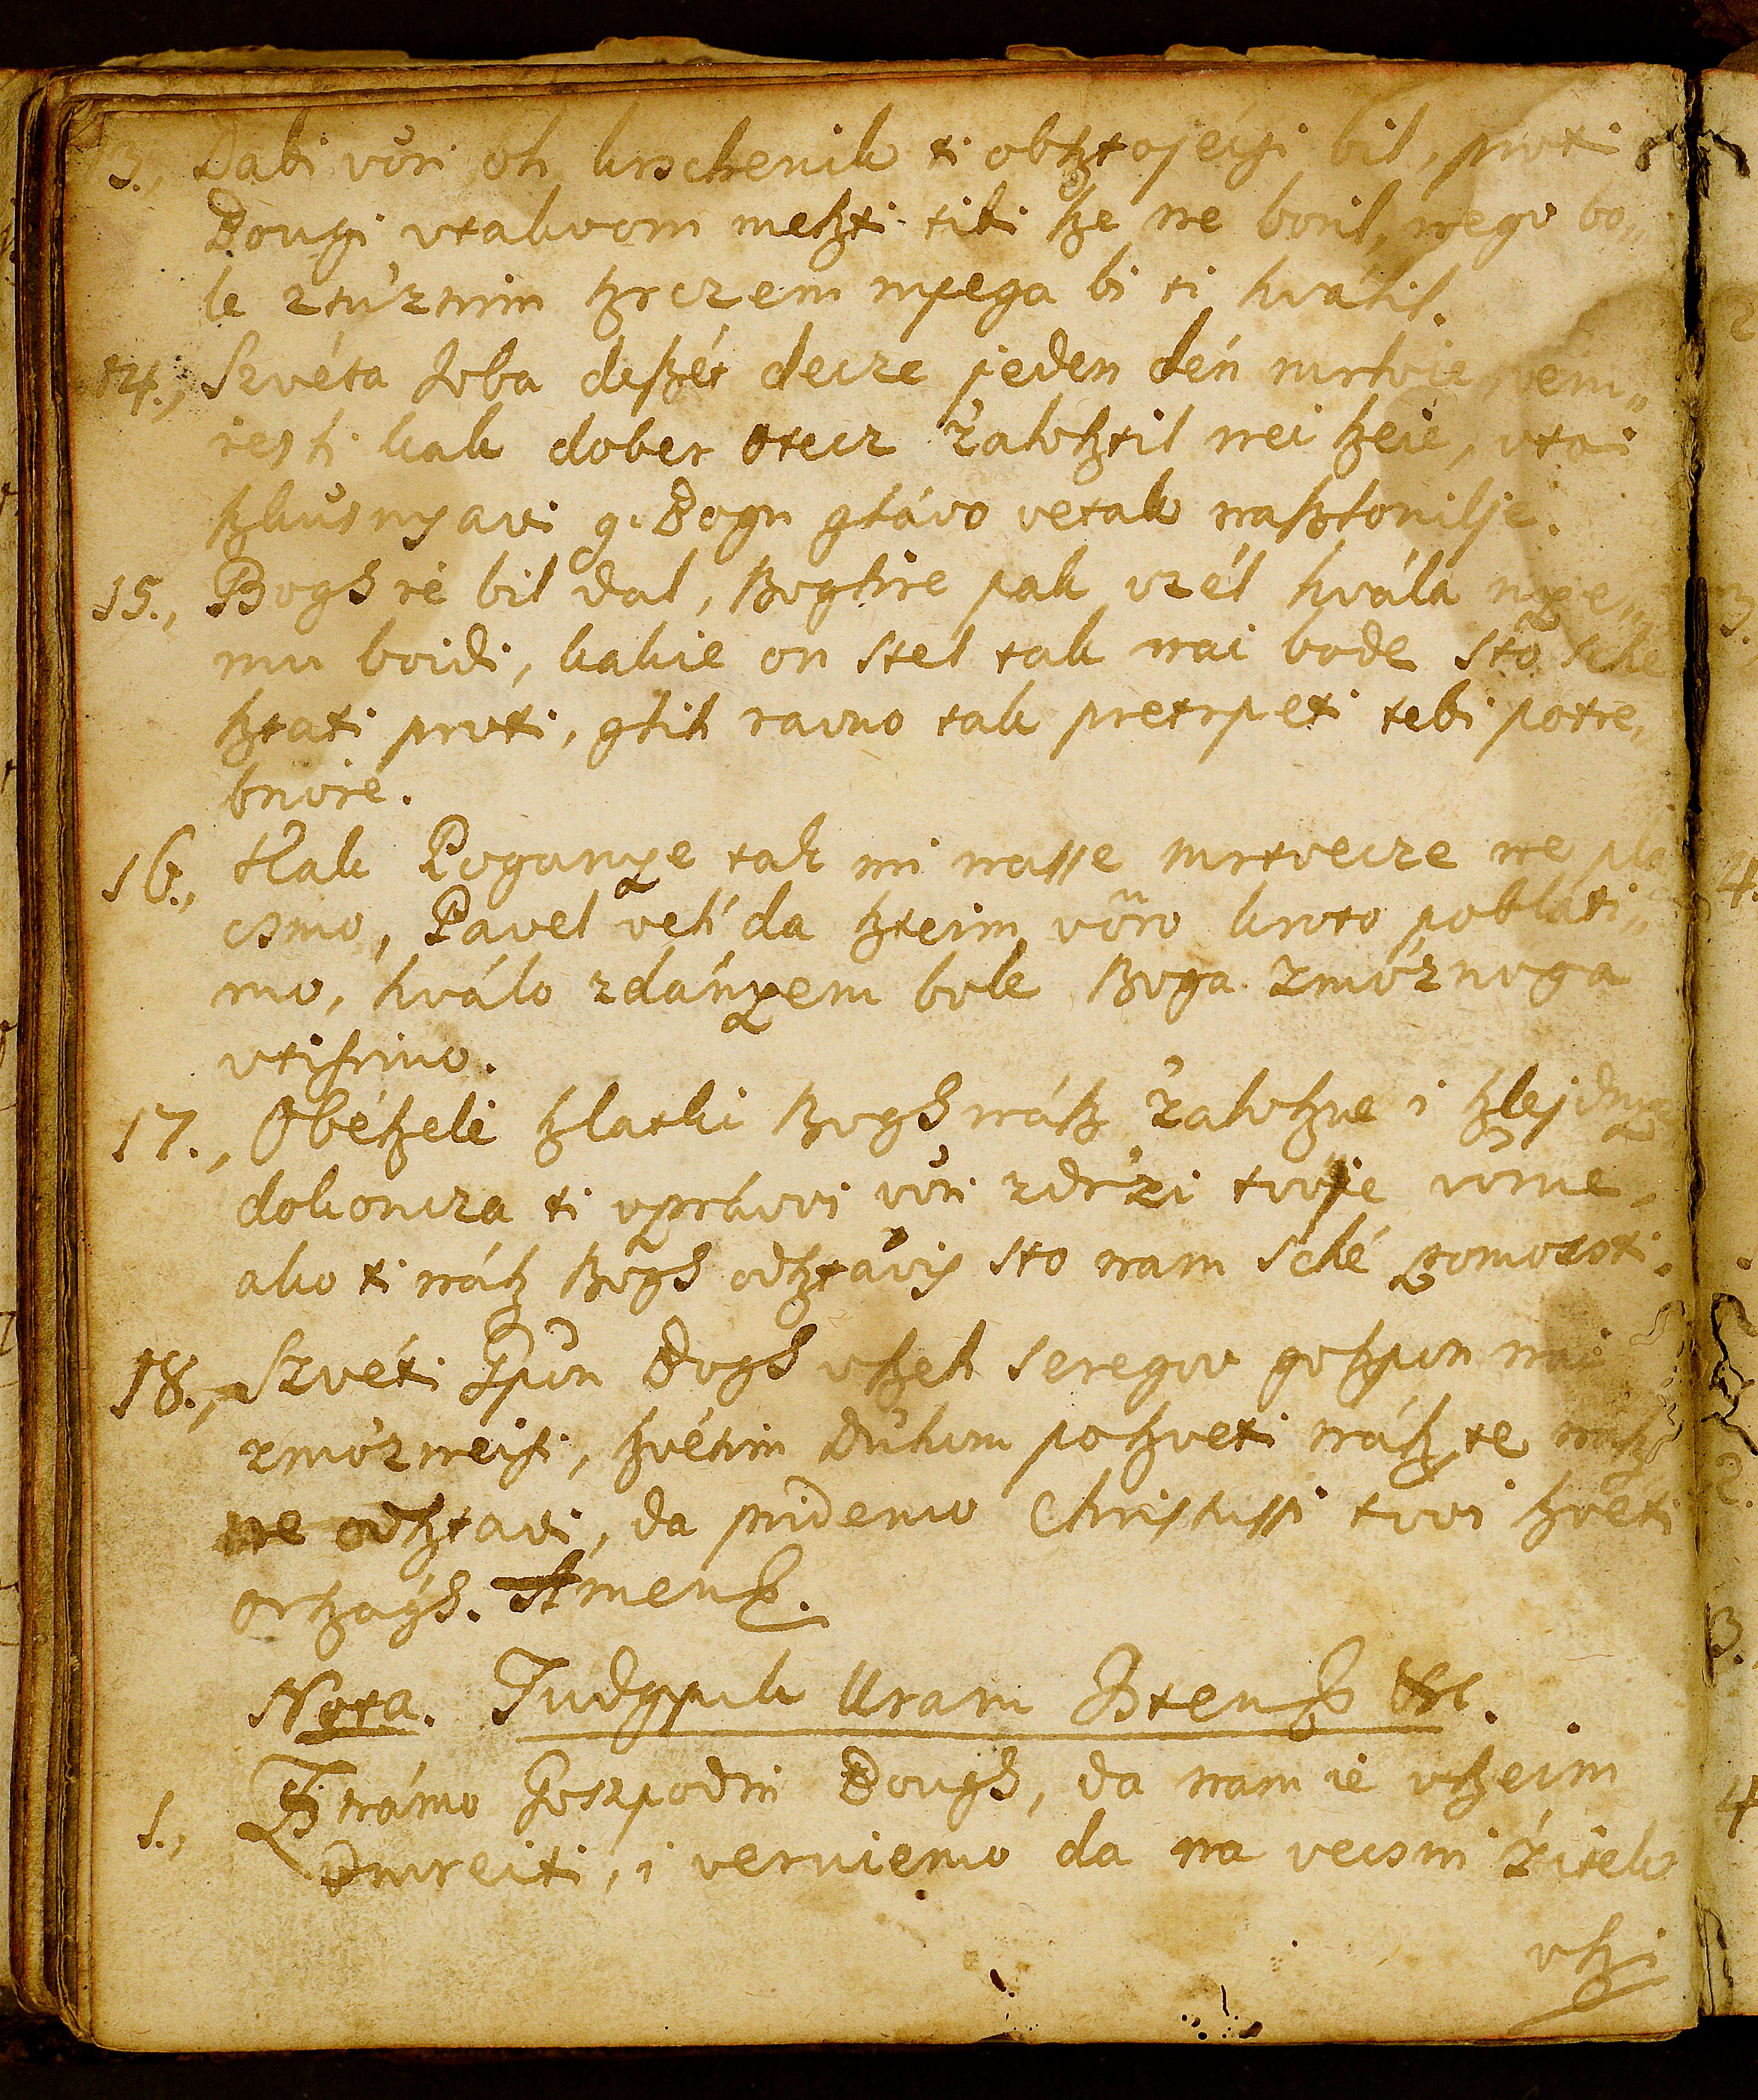 13., Dabi vöri oh krschenik ti obßtojéčsi bil, proti
Bougi vtakvom meßti titi ße ne boril, nego bo„
le ztúʼznim ßrczem nyega bi ti hválil.
14., Szvéta Joba deßét decze jeden dén mrtvie, nem„
resti kak dober otecz ʼzaloßtil nei ßeie, vtoi
ßkusnyavi g. Bogu glávo vetak naßlonilje.
15., Boghsé bil dal, Boghie pak vzél hvála nye„
mu boidi, kakie on stel tak nai bode sto sche
ßtati proti, glih ravno tak pretrpeti tebi potre„
bnoié.
16., Hlak Poganye tak mi nasse mrtvecze ne pla
csmo, Pavel veli da ßteim vöro kroto pobláti„
mo, hválo zdányem bole Boga zmóʼznoga
vtißimo.
17., Obéßeli ßlatki Bogh náß ʼzaloßne i ßlejdnye
dokoncza ti vprávvi vöri zdrʼzi tvoje vörne„
ako ti náß Bogh odßtavis sto nam sché pomocsti.
18., Szvéti Jpon Bogh vßeh seregov goßpon nai
zmóʼzneisi, ßvétim Dühom poßveti náß te náß
ne odßtavi, da pridemo Christussi tvoi ßvéti
orßágh. Amen.
Nota. Tudgyuk Uram Isten &c.
1., Známo Goszpodin Bough, da nam ié vßeim
vmreiti, i verviemo da na vecsni ʼzitek
vßi